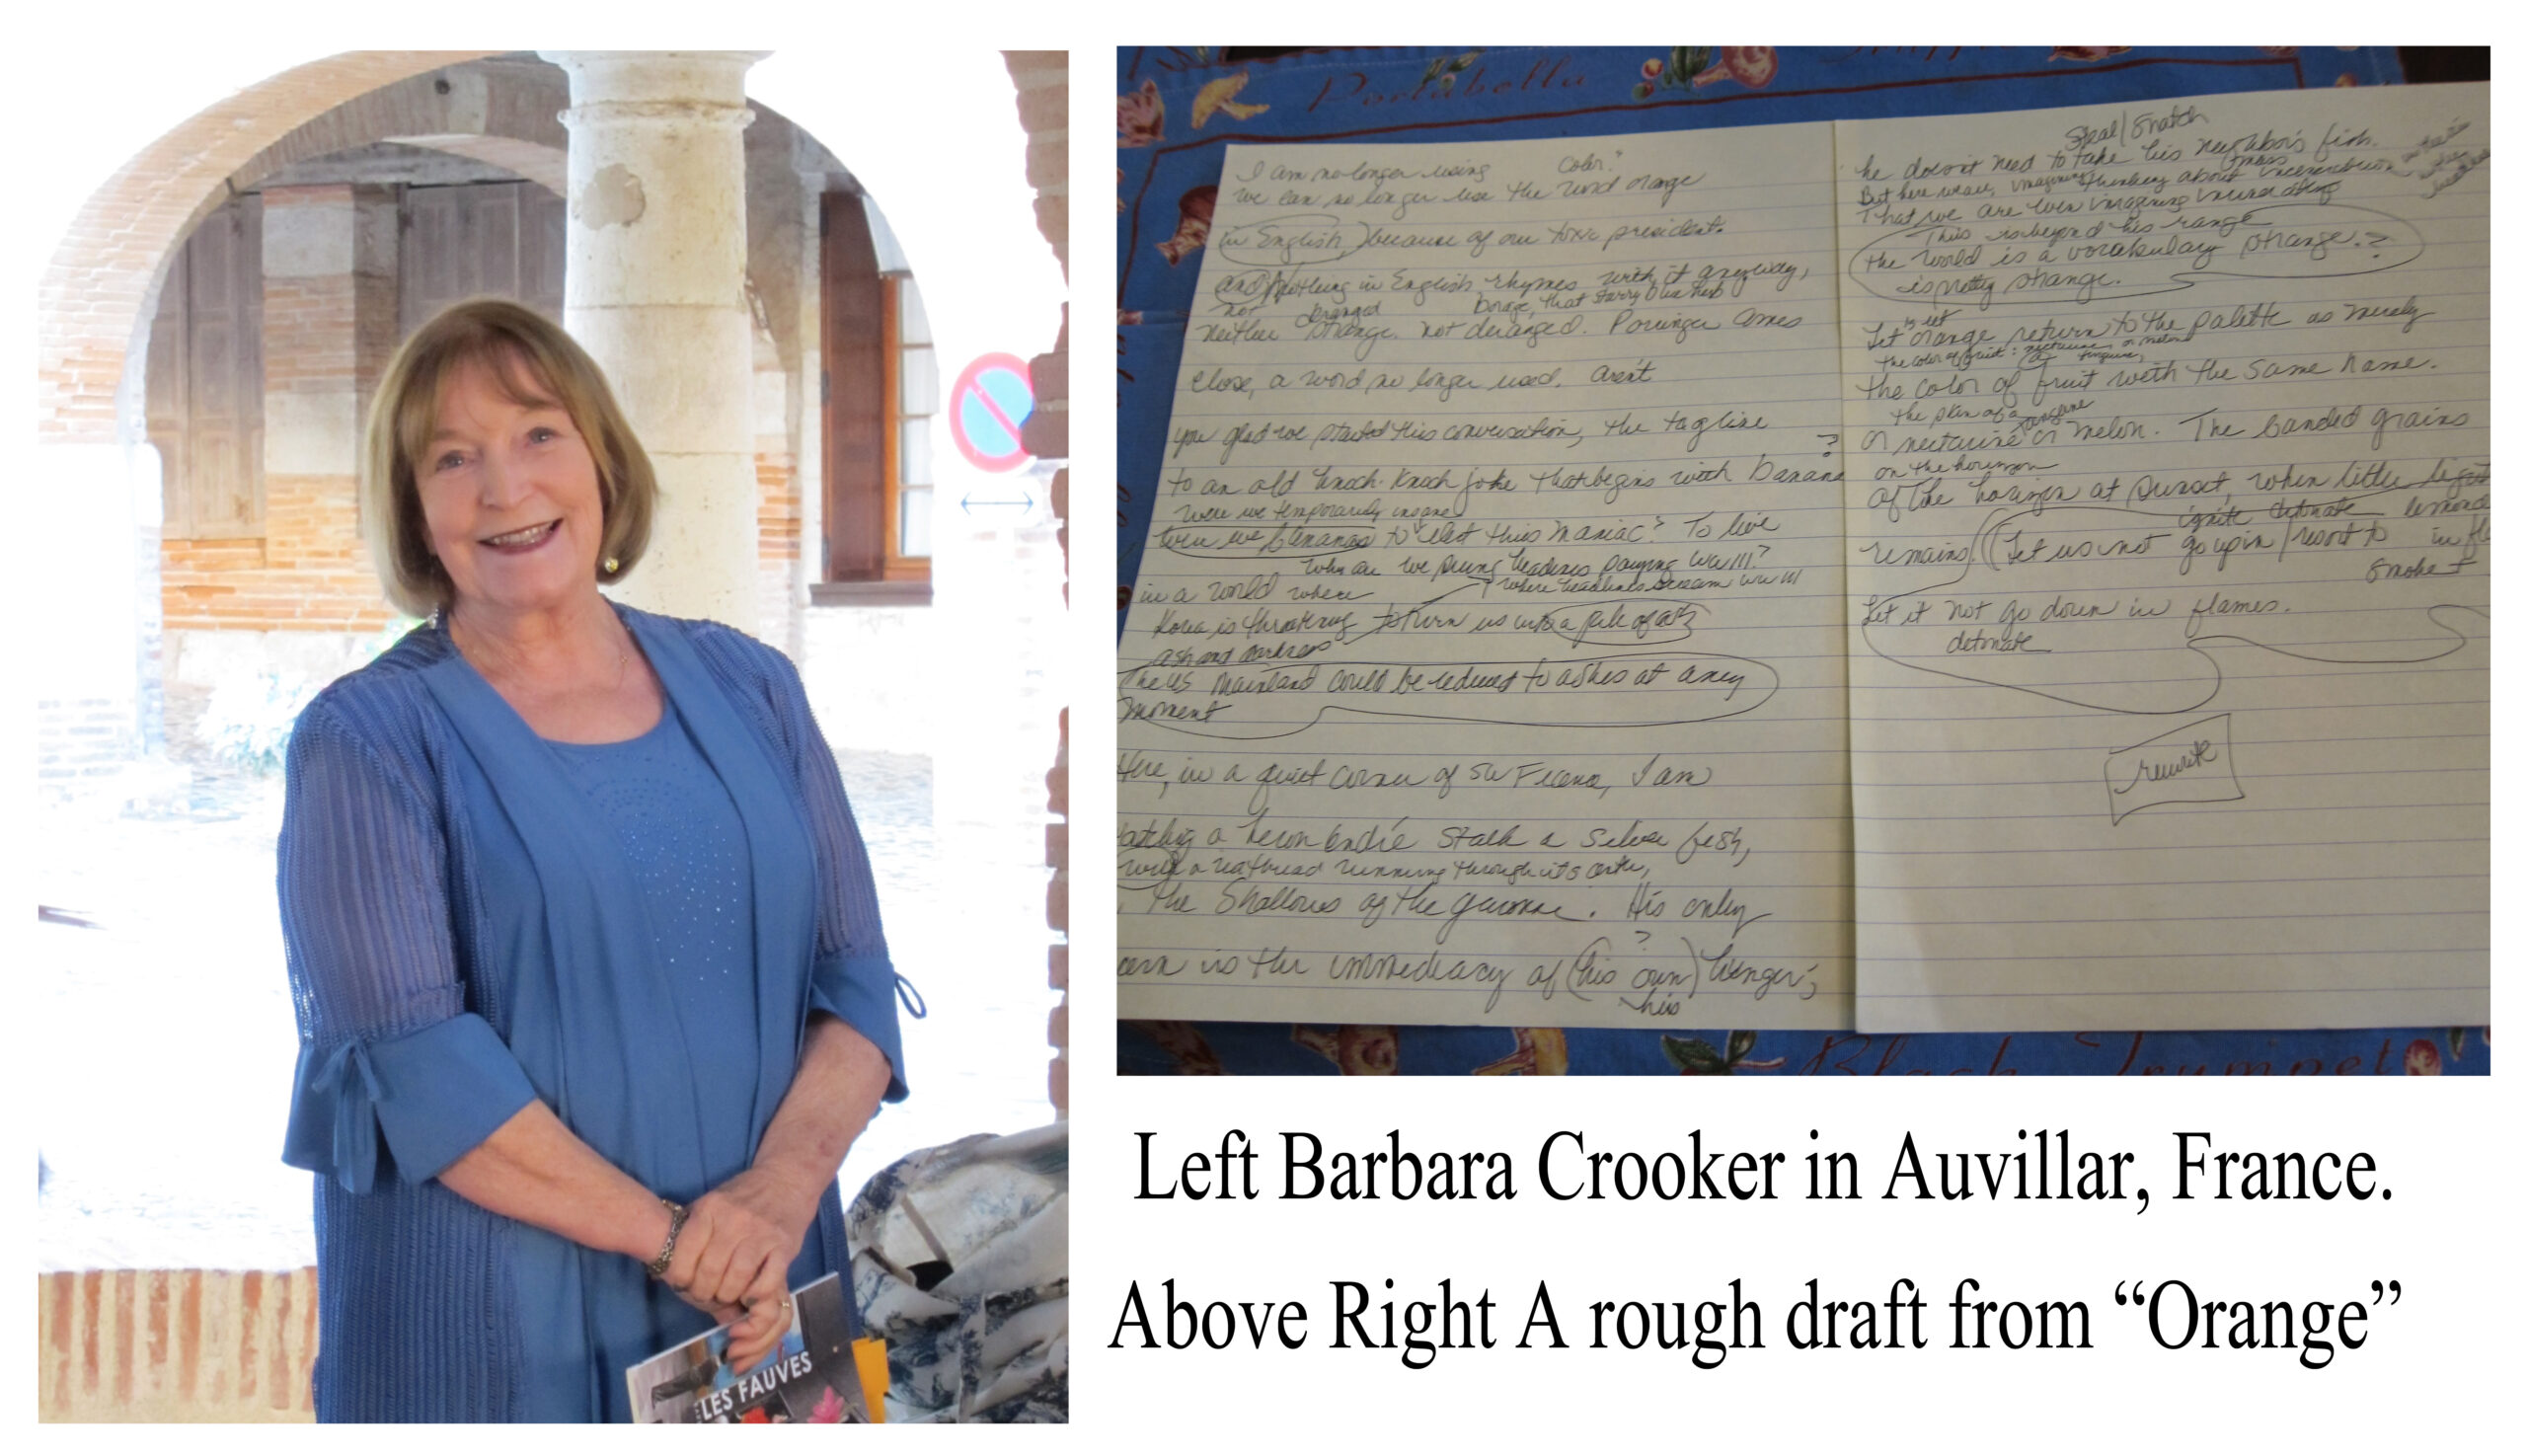 LES FAUVES
Portabella
I am no longer using color?
we can no longer use the word orange
in English, because of our toxic president.
and Nothing in English rhymes with it anyway,
not deranged borage, that starry blue herb
neither strange. not deranged. Porringer comes
close, a word no longer used. aren't
you glad we started this conversation, the tagline
to an old knock-knock joke that begins with banana?
were we temporarily insane
were we bananas to elect this maniac? To live
why are we seeing headlines saying WW III?
in a world where where headlines scream WW III
Korea is threatening to turn us into a pile of ash
ash and darkness
the US mainland could be reduced to ashes at any
moment
Here, in a quiet corner of SW France, I am
a heron stalk a silver fish,
running through its center,
the Shallows of the garonne. His only
is the immediacy of (his own) hunger;
?
his
Steal/Snatch
he doesn't need to take his neighbor's fish.
mass
But here we are, imagining thinking about incineration
That we are even imagining incinerating
This is beyond his range
the world is a vocabulary strange.?
is pretty strange.
Let orange return to the palette as merely
the color of fruit: nectarine or melon
the color of fruit with the same name.
the skin of a tangerine
or nectarine or melon. The banded grains
on the horizon
of the horizon at sunset, when little light
ignite detonate
remains. (Let us not go up in / resort to in
smoke +
Let it not go down in flames.
detonate
rewrite
Black Trumpet
Left Barbara Crooker in Auvillar, France.
Above Right A rough draft from “Orange”